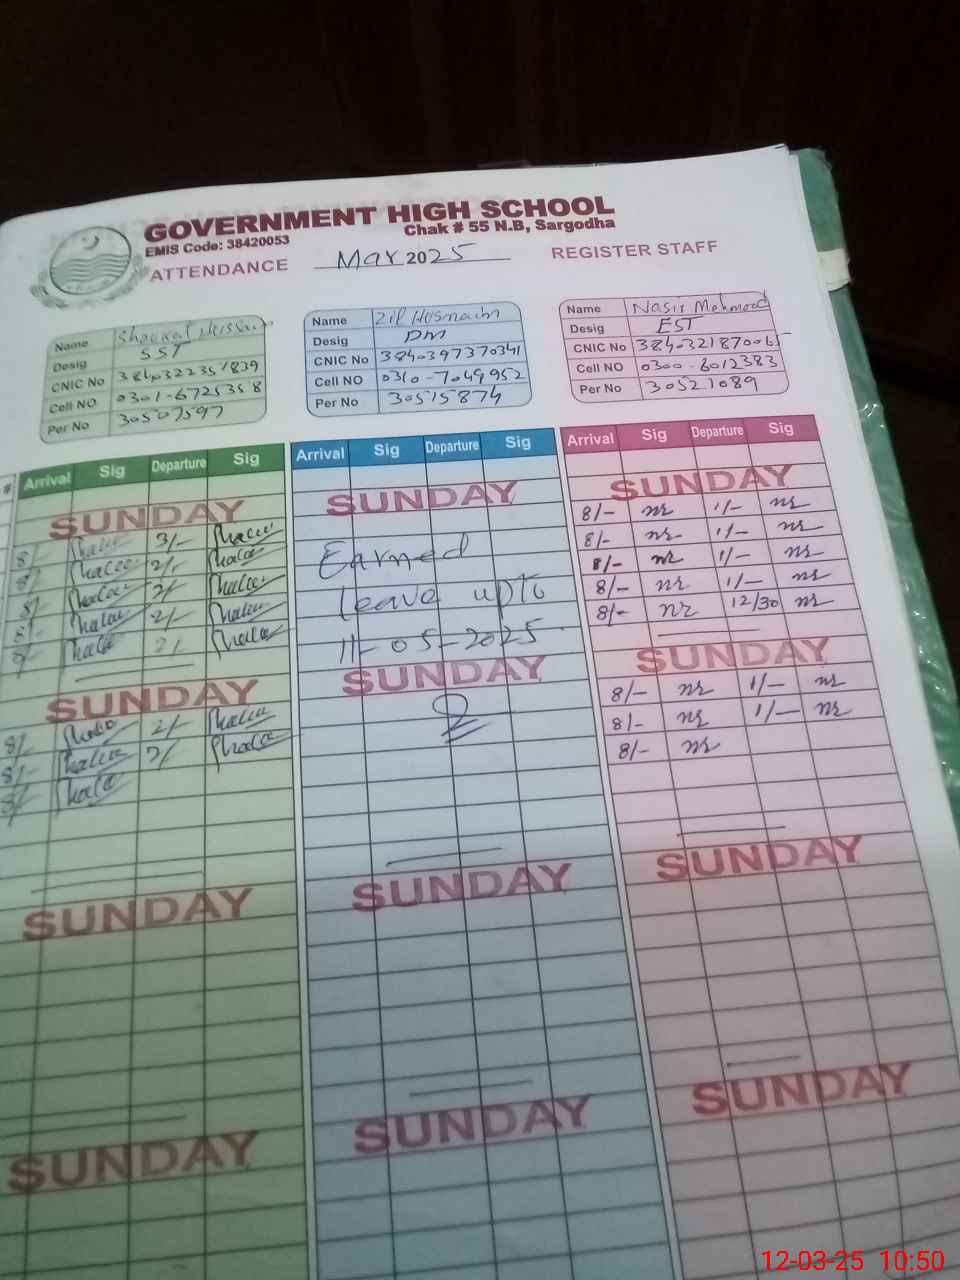 GOVERNMENT HIGH SCHOOL
Chak # 55 N.B, Sargodha
EMIS Code: 38420053
ATTENDANCE Mar 2025 REGISTER STAFF
Name Shaukat Hussain
Desig SST
CNIC No 3840322351839
Cell NO 0301-6725358
Per No 30507597
Name Zil Husnain
Desig DM
CNIC No 3840397370341
Cell NO 0310-7049952
Per No 30515874
Name Nasir Mehmood
Desig EST
CNIC No 3840321870065
Cell NO 0300-6012383
Per No 30521089
# Arrival Sig Departure Sig
SUNDAY
8/- 3/-
8/- 2/-
8/- 2/-
8/- 2/-
8/- 2/-
SUNDAY
8/- 2/-
8/- 2/-
8/-
SUNDAY
SUNDAY
Arrival Sig Departure Sig
SUNDAY
Earned
leave upto
11-05-2025
SUNDAY
SUNDAY
SUNDAY
Arrival Sig Departure Sig
SUNDAY
8/- nr 1/- nr
8/- nr 1/- nr
8/- nr 1/- nr
8/- nr 1/- nr
8/- nr 12/30 nr
SUNDAY
8/- nr 1/- nr
8/- nr 1/- nr
8/- nr
SUNDAY
SUNDAY
12-03-25 10:50